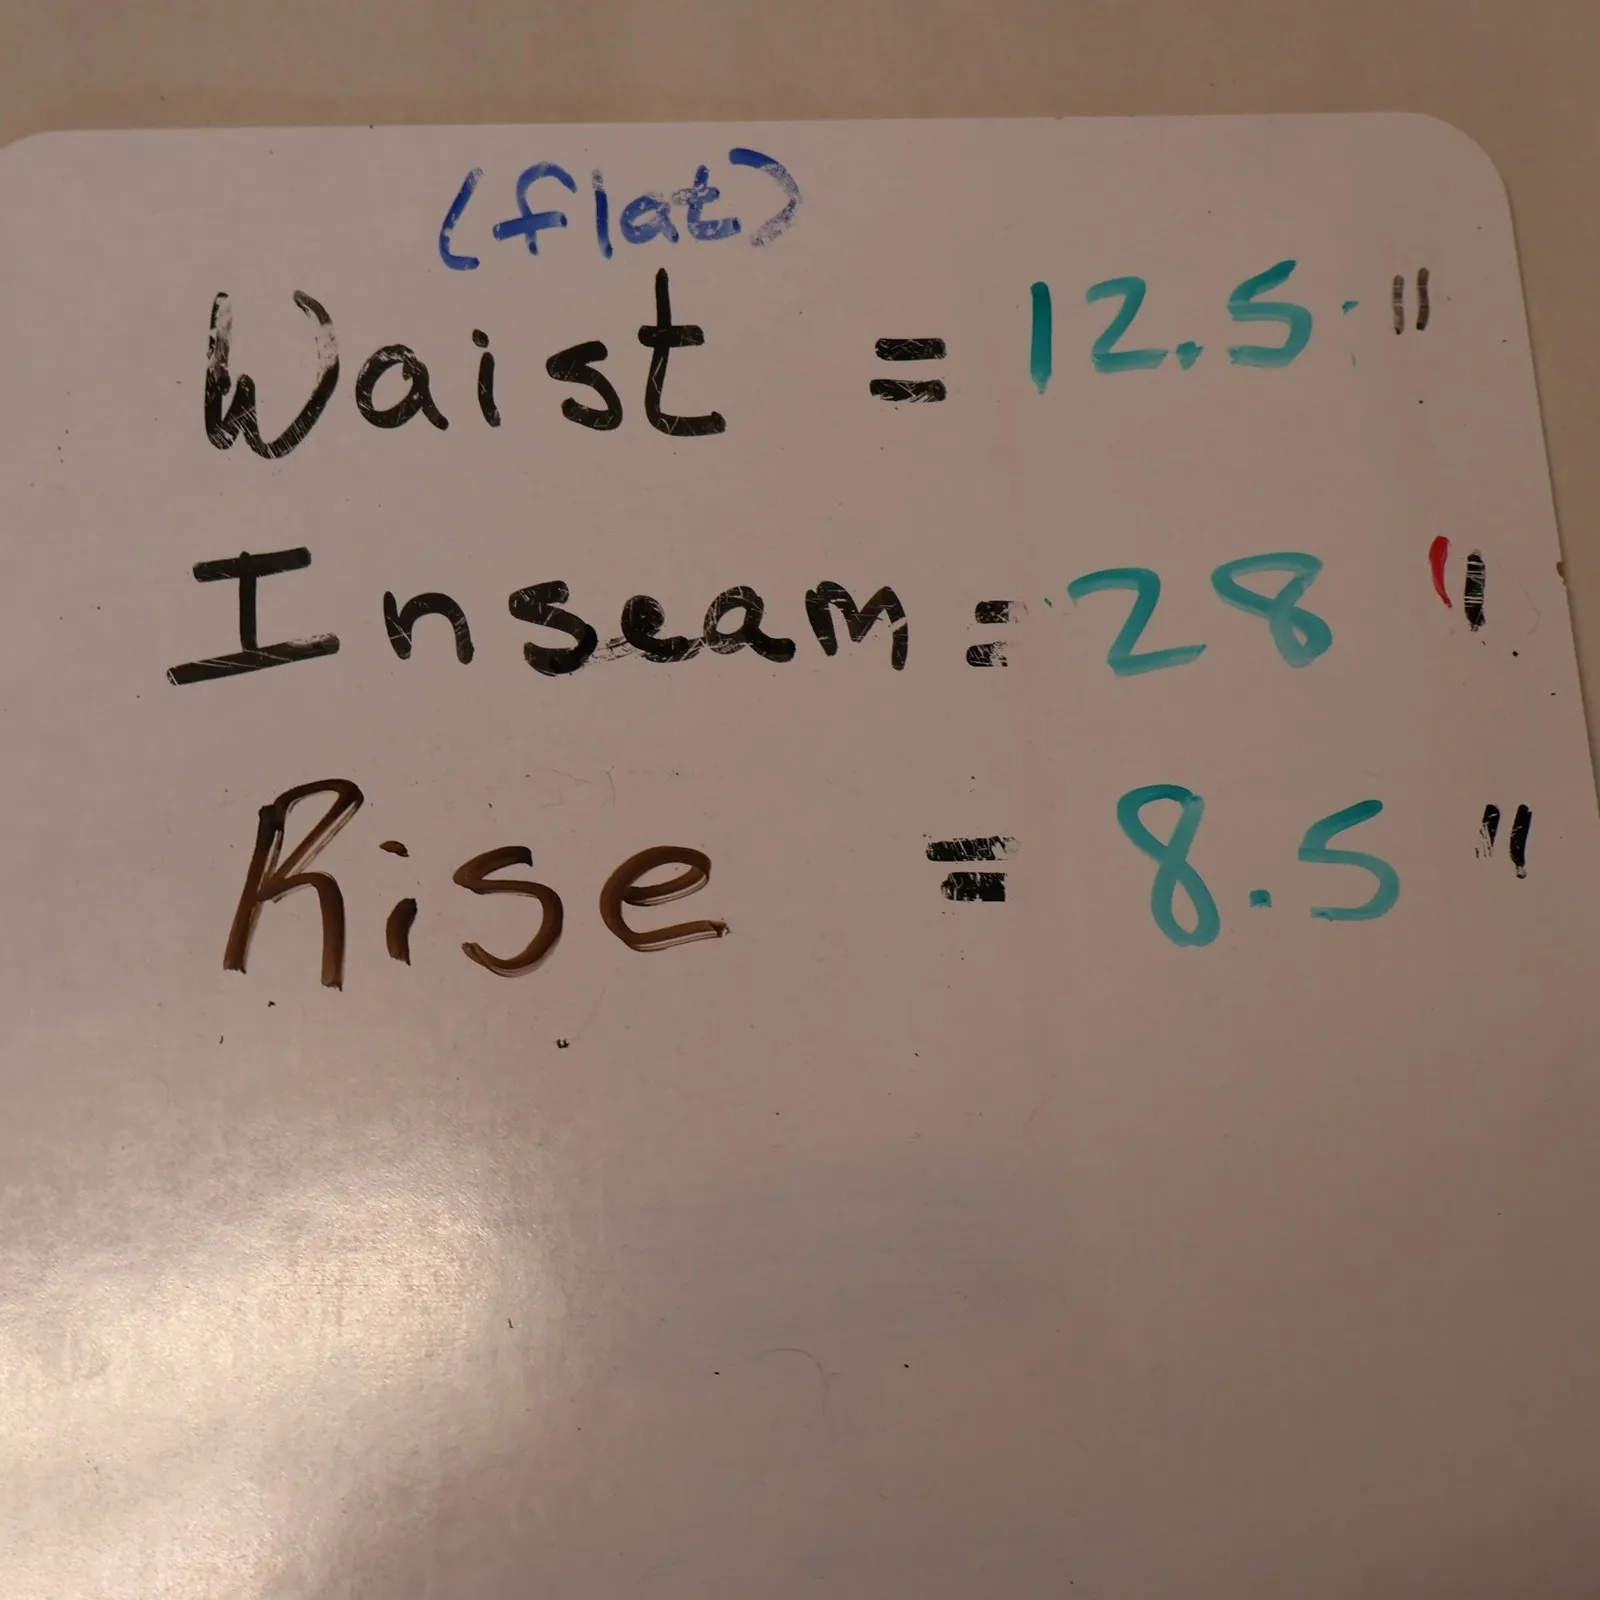 (flat)
Waist = 12.5 "
Inseam = 28 "
Rise = 8.5 "